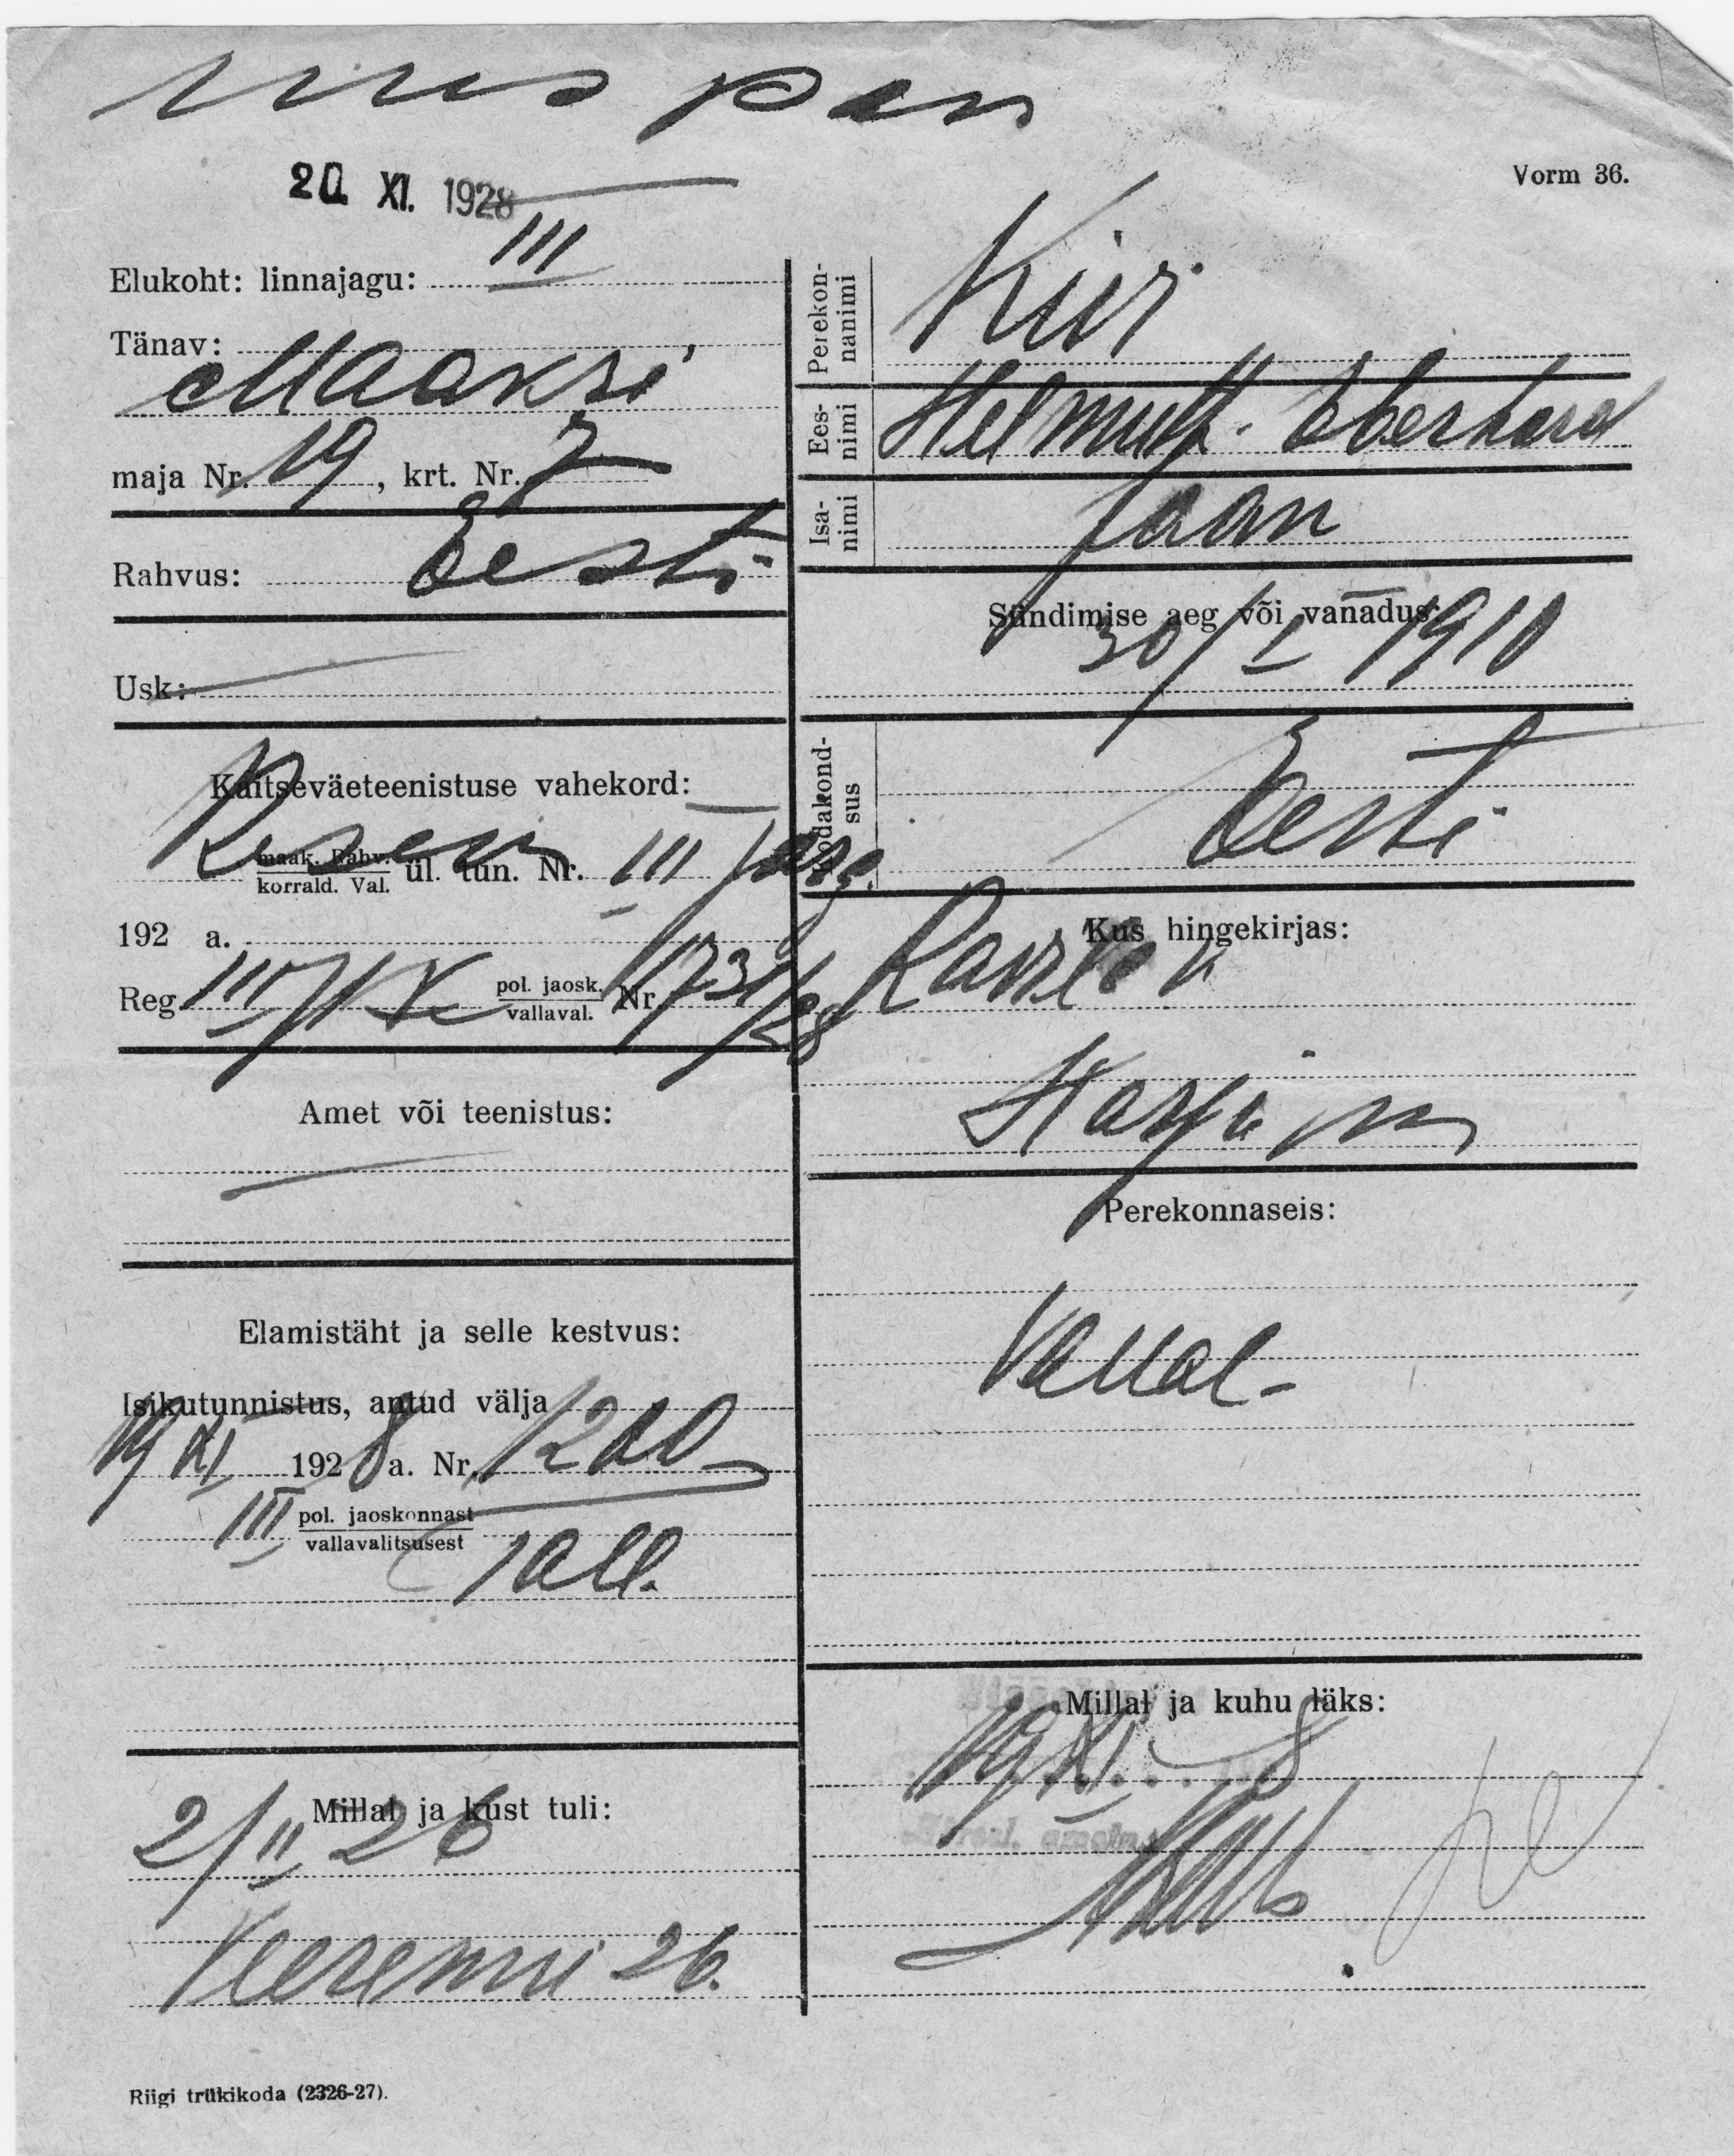 20. XI. 1928
Vorm 36.
Elukoht: linnajagu: III
Tänav:
Maakri
maja Nr. 19, krt. Nr. 7
Rahvus: Eesti
Usk: —
Käitseväeteenistuse vahekord:
maak. Rahv.
korrald. Val. ül. tun. Nr. III
192 a.
Reg. III pol. jaosk.
vallaval. Nr. 1731/28
Amet või teenistus:
—
Elamistäht ja selle kestvus:
Isikutunnistus, antud välja
19 XI 1928 a. Nr. 1200
III pol. jaoskonnast
vallavalitsusest
Tall.
Millal ja kust tuli:
2/II 26
Veerenni 26.
Perekonnanimi Kiir
Eesnimi Helmuth-Eberhard
Isanimi Jaan
Sündimise aeg või vanadus:
30/I 1910
Kodakondsus Eesti
Kus hingekirjas:
Harju m
Perekonnaseis:
Vallal-
Millal ja kuhu läks:
19 XI 8
Riigi trükikoda (2326-27).